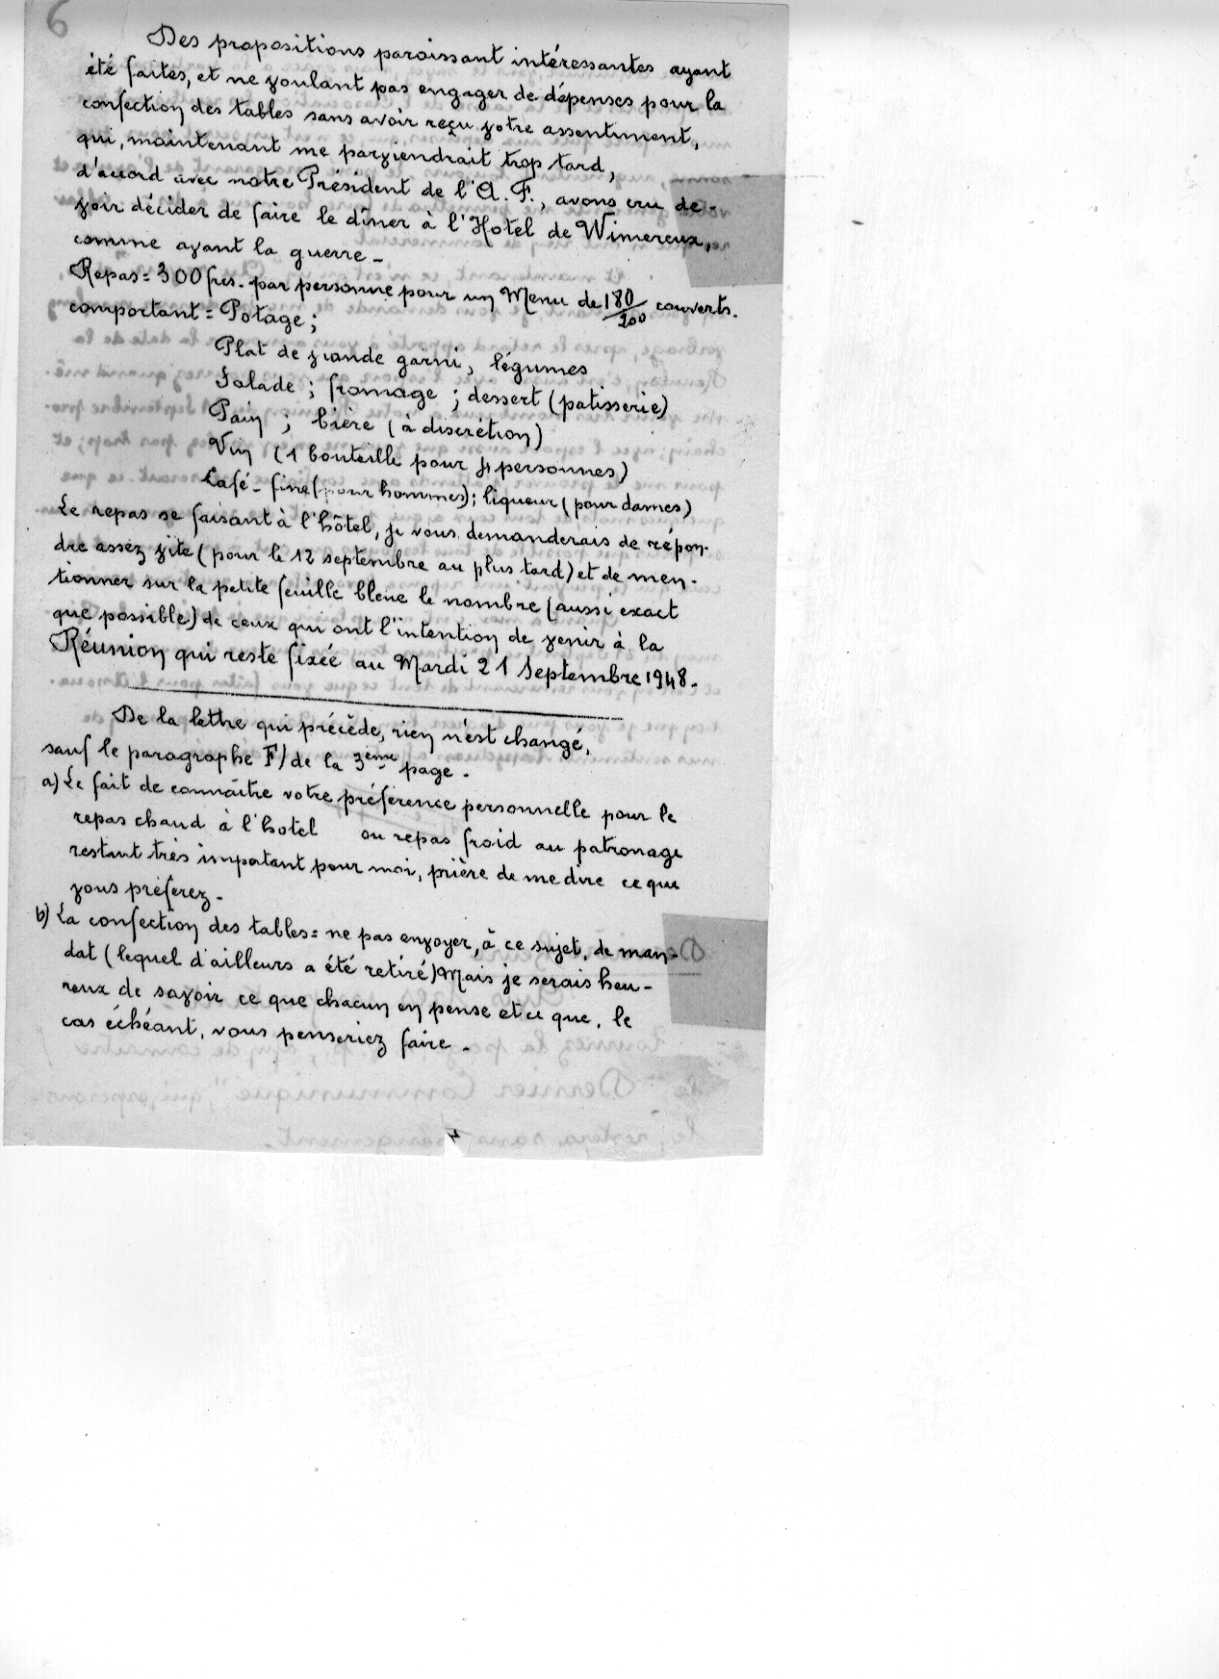 6
Des propositions paraissant intéressantes ayant
été faites, et ne voulant pas engager de dépenses pour la
confection des tables sans avoir reçu votre assentiment,
qui, maintenant me parviendrait trop tard,
d'accord avec notre Président de l'A.F., avons cru de-
voir décider de faire le dîner à l'Hotel de Wimereux,
comme avant la guerre -
Repas = 300 frs. par personne pour un Menu de 180/200 couverts.
comportant = Potage ;
Plat de viande garni, légumes
Salade ; fromage ; dessert (patisserie)
Pain ; bière (à discrétion)
Vin (1 bouteille pour 4 personnes)
Café - fine (pour hommes) ; liqueur (pour dames)
Le repas se faisant à l'hôtel, je vous demanderais de répon-
dre assez vite (pour le 12 septembre au plus tard) et de men-
tionner sur la petite feuille bleue le nombre (aussi exact
que possible) de ceux qui ont l'intention de venir à la
Réunion qui reste fixée au Mardi 21 Septembre 1948.
De la lettre qui précède, rien n'est changé,
sauf le paragraphe F/ de la 3ème page.
a) Le fait de connaître votre préférence personnelle pour le
repas chaud à l'hotel ou repas froid au patronage
restant très impotant pour moi, prière de me dire ce que
vous préferez -
b) La confection des tables = ne pas envoyer, à ce sujet, de man-
dat (lequel d'ailleurs a été retiré) Mais je serais heu-
reux de savoir ce que chacun en pense et ce que, le
cas échéant, vous penseriez faire.